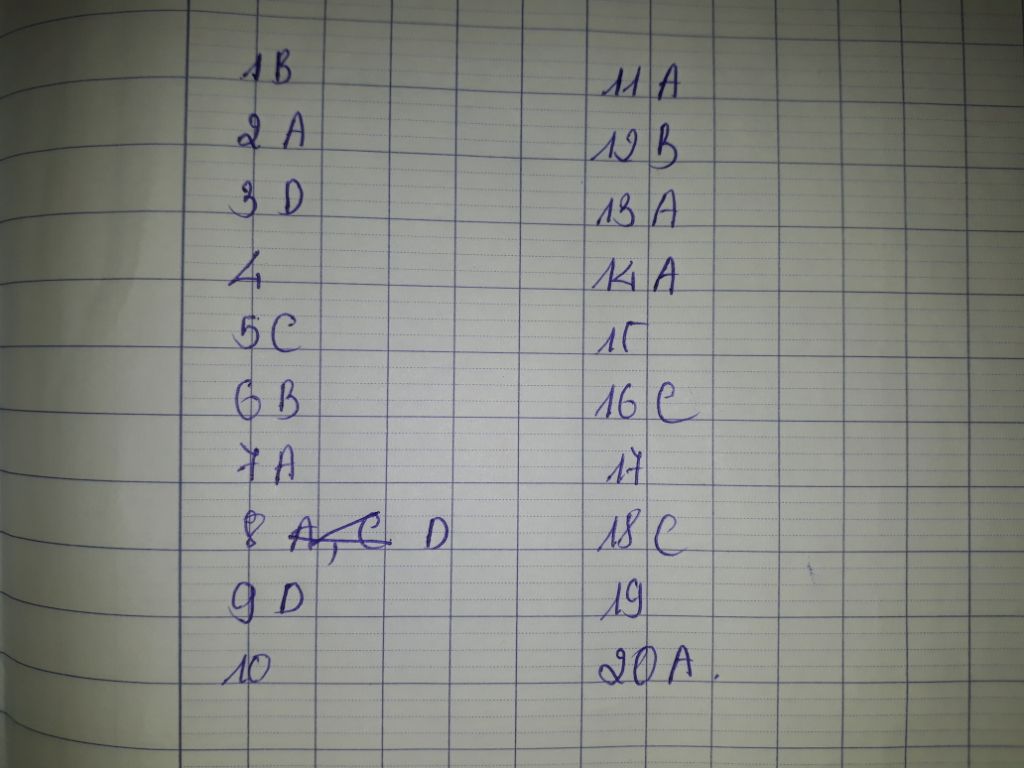 1 B
2 A
3 D
4
5 C
6 B
7 A
8 A, C D
9 D
10
11 A
12 B
13 A
14 A
15
16 C
17
18 C
19
20 A.